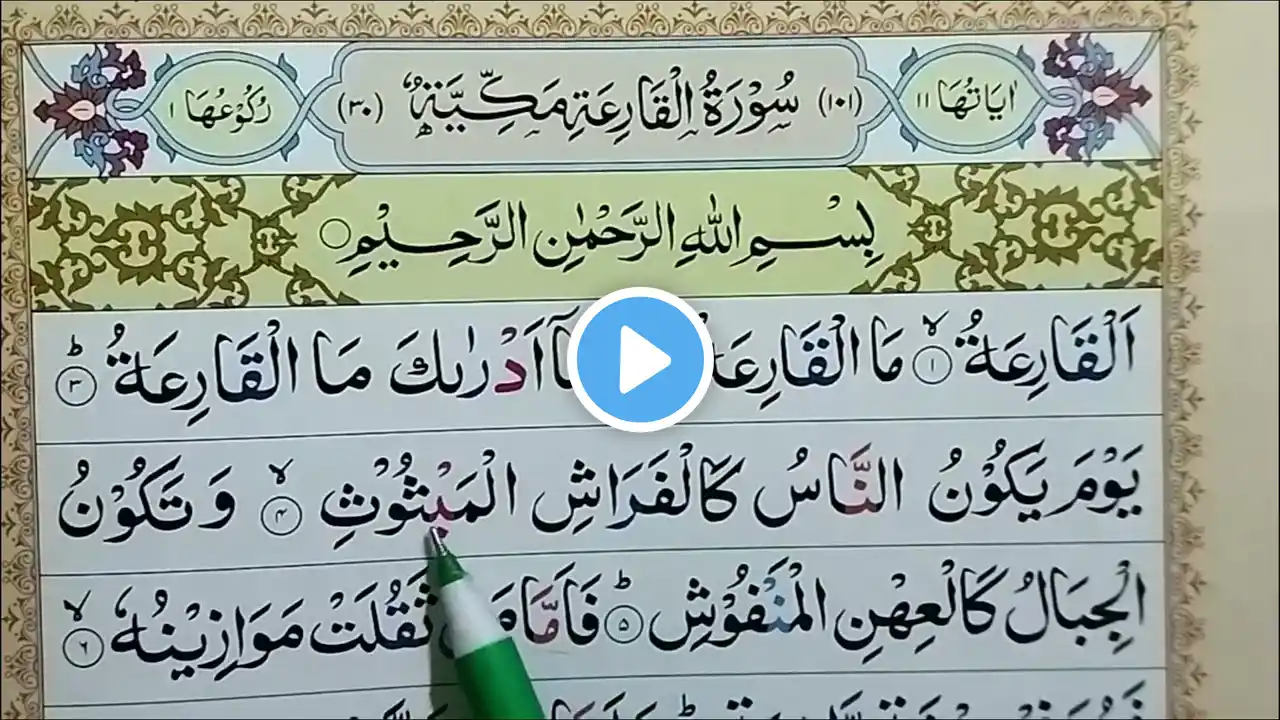 اٰيَاتُهَا ١١
(١٠١) سُوْرَةُ الْقَارِعَةِ مَكِّيَّةٌ (٣٠)
رُكُوْعُهَا ١
بِسْمِ اللّٰهِ الرَّحْمٰنِ الرَّحِيْمِ
اَلْقَارِعَةُ ۙ‏ ١ مَا الْقَارِعَةُ اَدْرٰىكَ مَا الْقَارِعَةُ ؕ‏ ٣
يَوْمَ يَكُوْنُ النَّاسُ كَالْفَرَاشِ الْمَبْثُوْثِ ۙ‏ ٤ وَتَكُوْنُ
الْجِبَالُ كَالْعِهْنِ الْمَنْفُوْشِ ؕ‏ ٥ فَاَمَّا ثَقُلَتْ مَوَازِيْنُهٗ ۙ‏ ٦